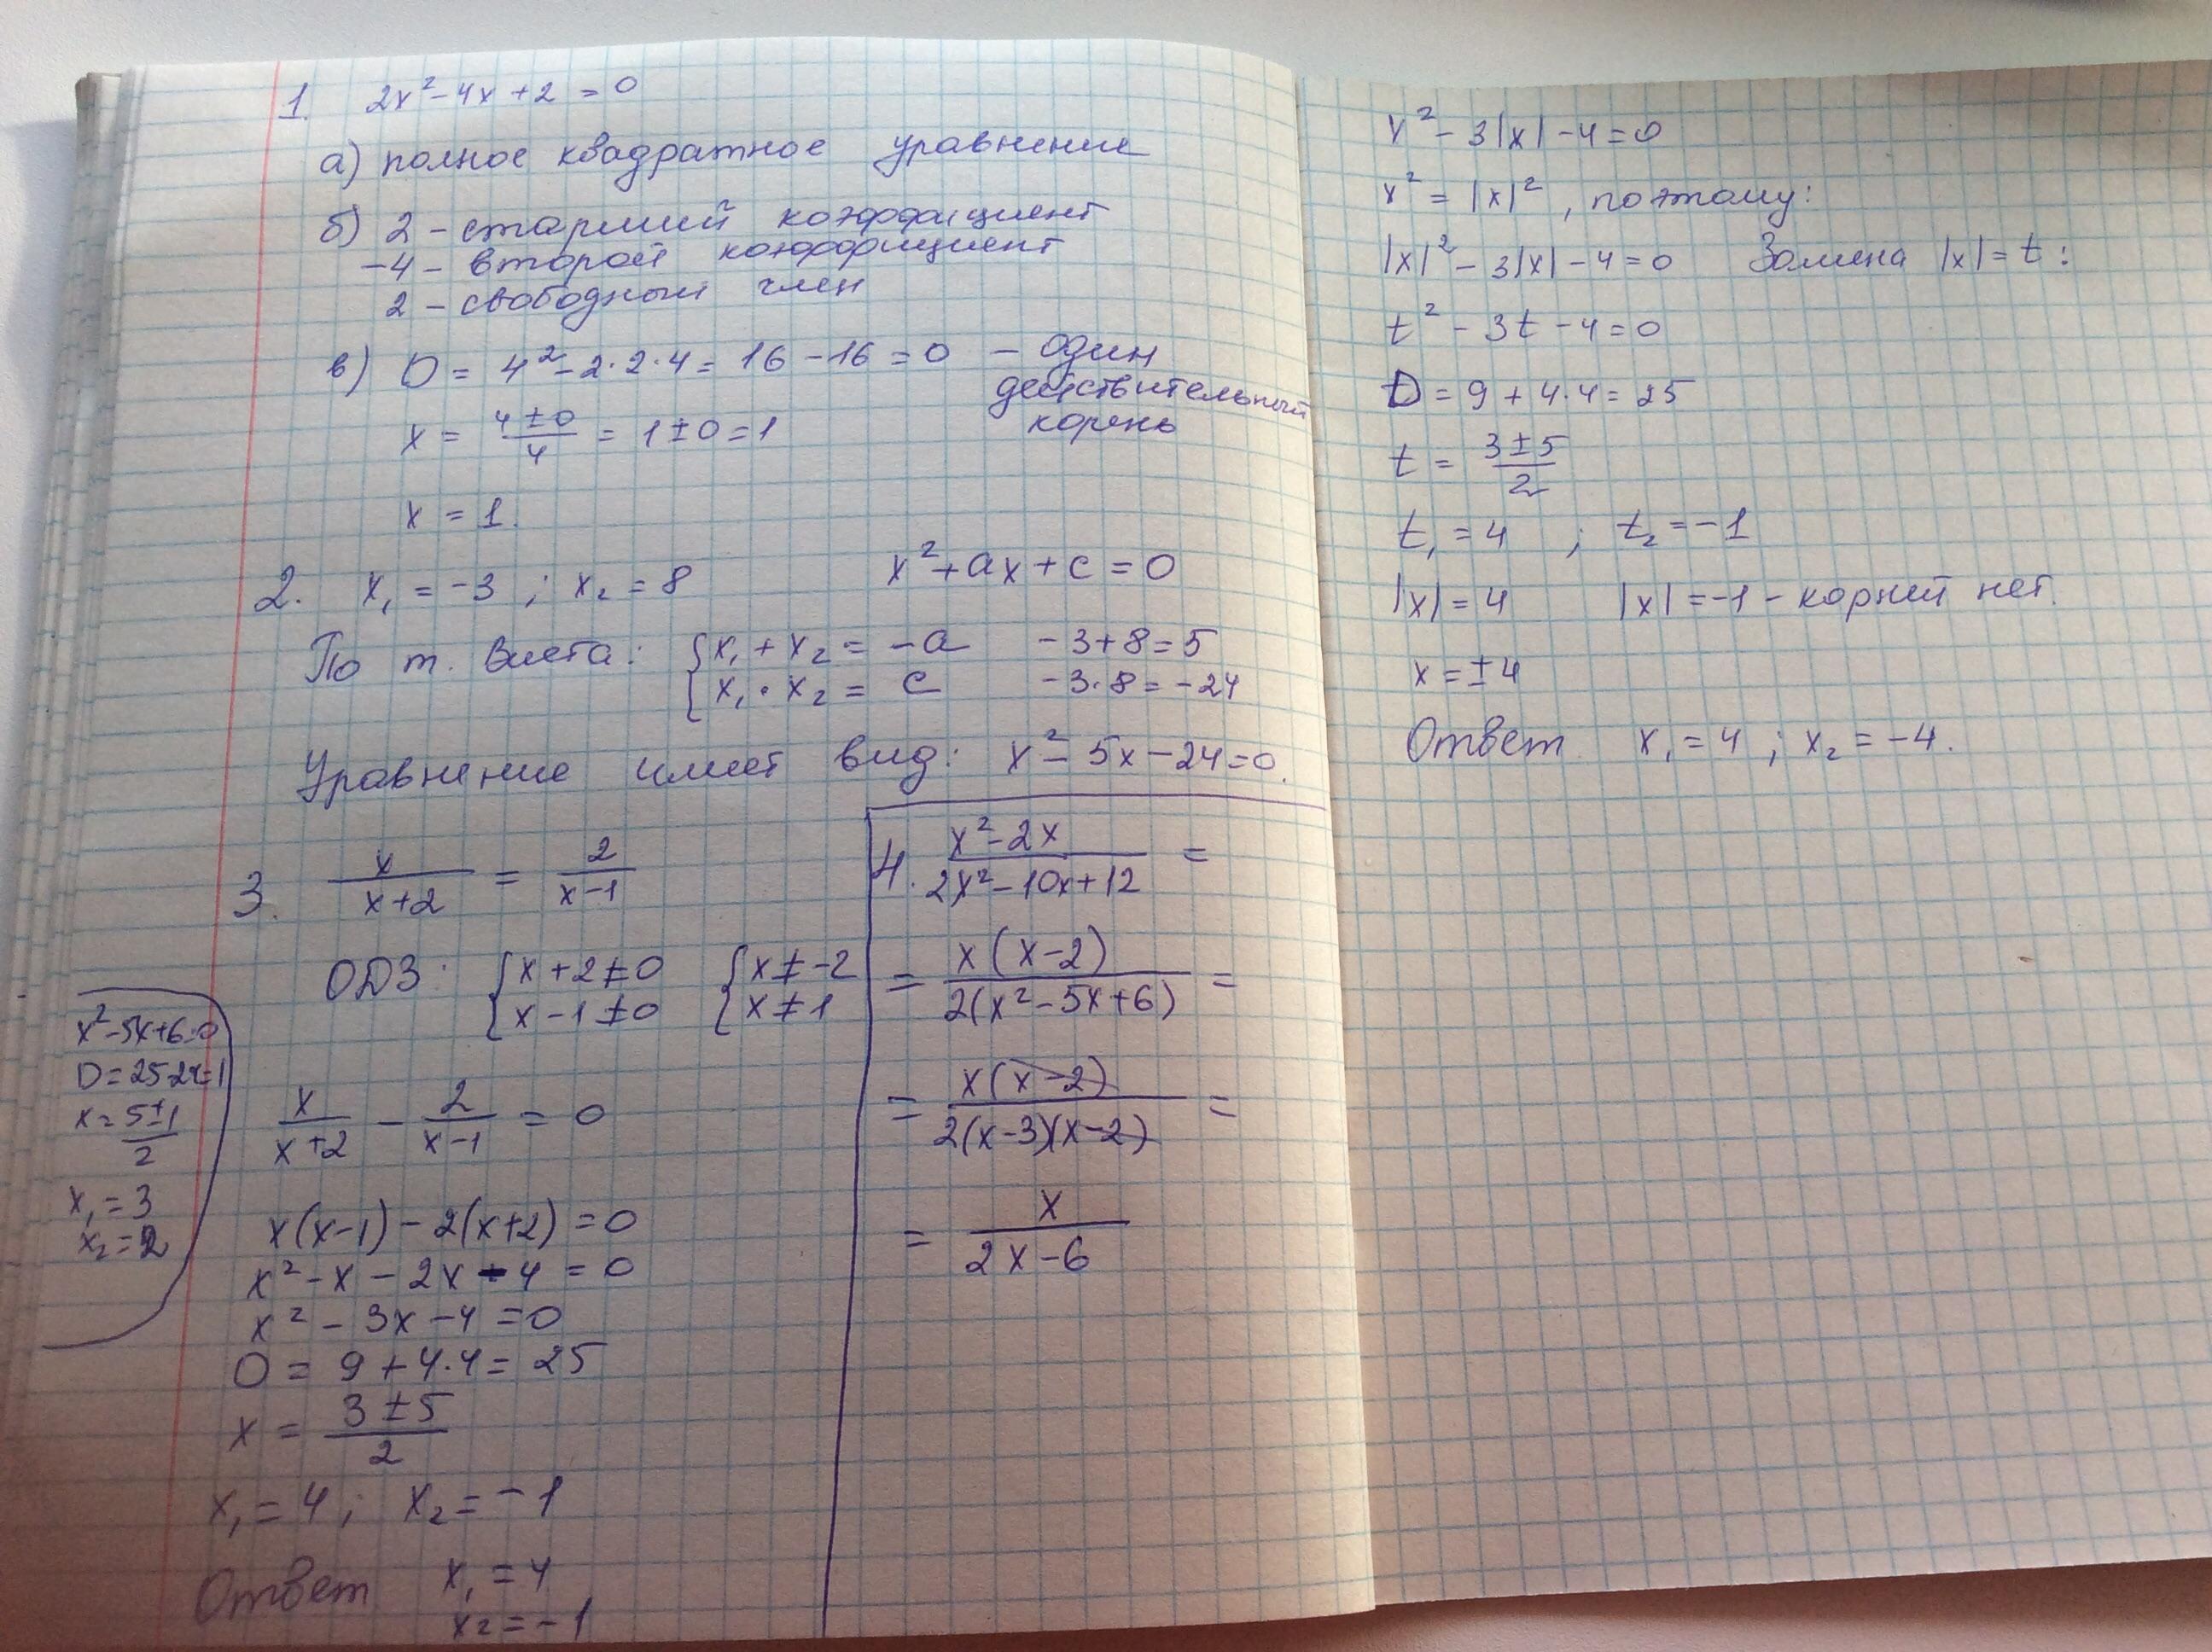 1. 2x² - 4x + 2 = 0
а) полное квадратное уравнение
б) 2 - старший коэффициент
-4 - второй коэффициент
2 - свободный член
в) D = 4² - 2·2·4 = 16 - 16 = 0 - один
действительный
корень
x = (4 ± 0)/4 = 1 ± 0 = 1
x = 1.
2. x₁ = -3 ; x₂ = 8 x² + ax + c = 0
По т. Виета: { x₁ + x₂ = -a -3 + 8 = 5
{ x₁ · x₂ = c -3·8 = -24
Уравнение имеет вид: x² - 5x - 24 = 0.
3. x/(x+2) = 2/(x-1)
ОДЗ: { x + 2 ≠ 0 { x ≠ -2
{ x - 1 ≠ 0 { x ≠ 1
x/(x+2) - 2/(x-1) = 0
x(x-1) - 2(x+2) = 0
x² - x - 2x - 4 = 0
x² - 3x - 4 = 0
D = 9 + 4·4 = 25
x = (3 ± 5)/2
x₁ = 4 ; x₂ = -1
Ответ x₁ = 4
x₂ = -1
x² - 5x + 6 = 0
D = 25-24=1
x = (5±1)/2
x₁ = 3
x₂ = 2
4. (x² - 2x)/(2x² - 10x + 12) =
= x(x-2)/2(x² - 5x + 6) =
= x(x-2)/2(x-3)(x-2) =
= x/(2x - 6)
x² - 3|x| - 4 = 0
x² = |x|² , поэтому:
|x|² - 3|x| - 4 = 0 Замена |x| = t :
t² - 3t - 4 = 0
D = 9 + 4·4 = 25
t = (3 ± 5)/2
t₁ = 4 ; t₂ = -1
|x| = 4 |x| = -1 - корней нет.
x = ±4
Ответ x₁ = 4 ; x₂ = -4.